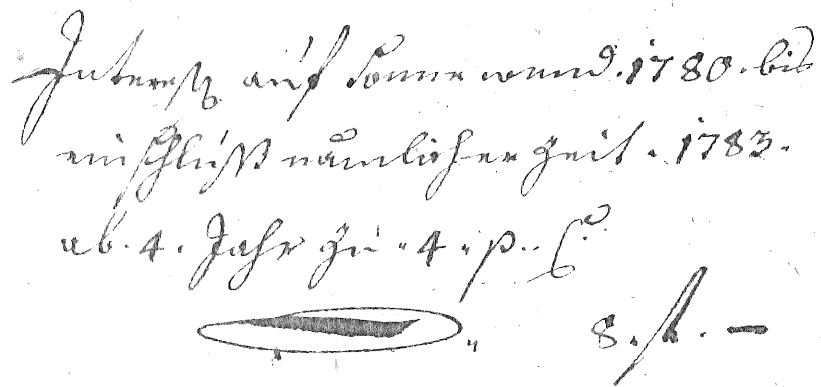 Interesse auf Sonnewend. 1780. bis
einschlüß nämlicher Zeit. 1783.
ab. 4. Jahr zu. 4. p. C.
8. fl. —